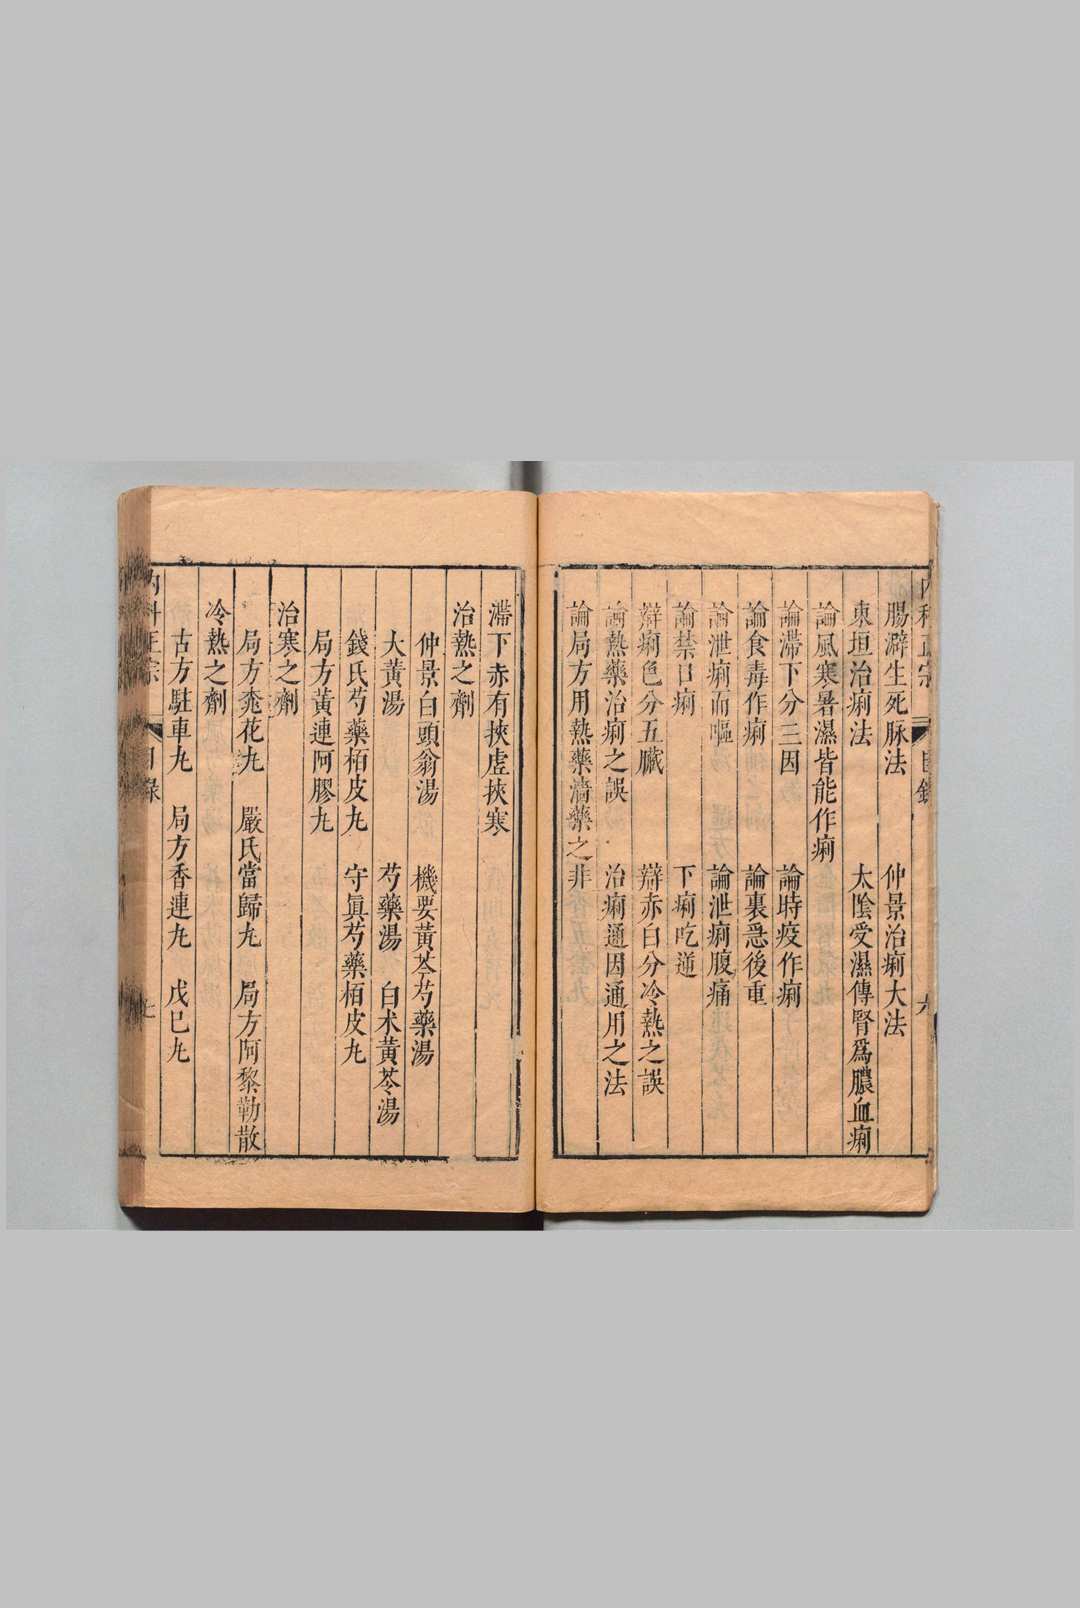 內科正宗 目錄 六
腸澼生死脉法 仲景治痢大法
東垣治痢法 太陰受濕傳腎爲膿血痢
論風寒暑濕皆能作痢
論滯下分三因 論時疫作痢
論食毒作痢 論裏急後重
論泄痢而嘔 論泄痢腹痛
論禁口痢 下痢吃逆
辯痢色分五臟 辯赤白分冷熱之誤
論熱藥治痢之誤 治痢通因通用之法
論局方用熱藥濇藥之非
滯下赤有挾虛挾寒
治熱之劑
仲景白頭翁湯 機要黃芩芍藥湯
大黃湯 芍藥湯 白术黃芩湯
錢氏芍藥栢皮九 守眞芍藥栢皮九
局方黃連阿膠九
治寒之劑
局方桃花九 嚴氏當歸九 局方阿黎勒散
冷熱之劑
古方駐車九 局方香連九 戊巳九
內科正宗 目錄 七